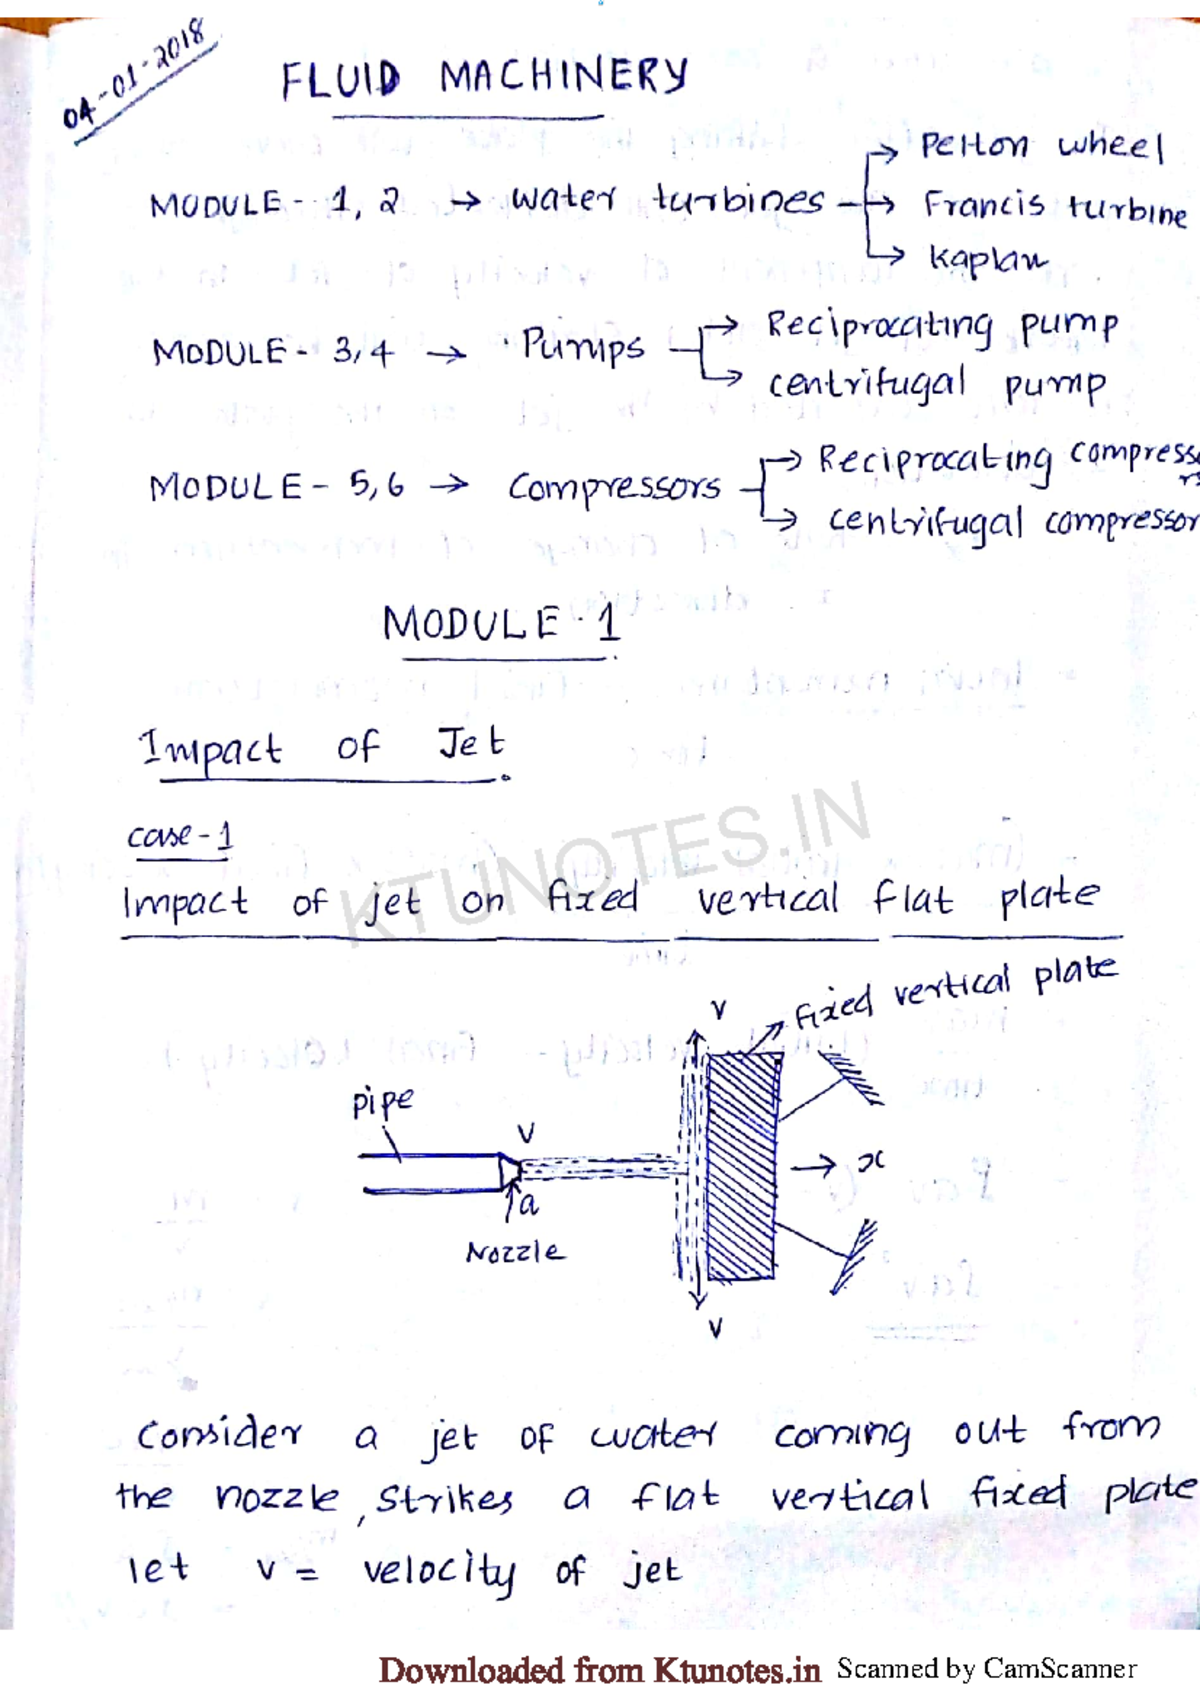 04-01-2018
FLUID MACHINERY
MODULE - 1, 2 → water turbines → Pelton wheel
→ Francis turbine
→ Kaplan
MODULE - 3,4 → Pumps → Reciprocating pump
→ centrifugal pump
MODULE - 5,6 → Compressors → Reciprocating compress
rs
→ centrifugal compressor
MODULE - 1
Impact of Jet
case - 1
Impact of jet on fixed vertical flat plate
KTUNOTES.IN
fixed vertical plate
v
pipe
v
→ x
a
Nozzle
v
Consider a jet of water coming out from
the nozzle, strikes a flat vertical fixed plate
let v = velocity of jet
Downloaded from Ktunotes.in Scanned by CamScanner